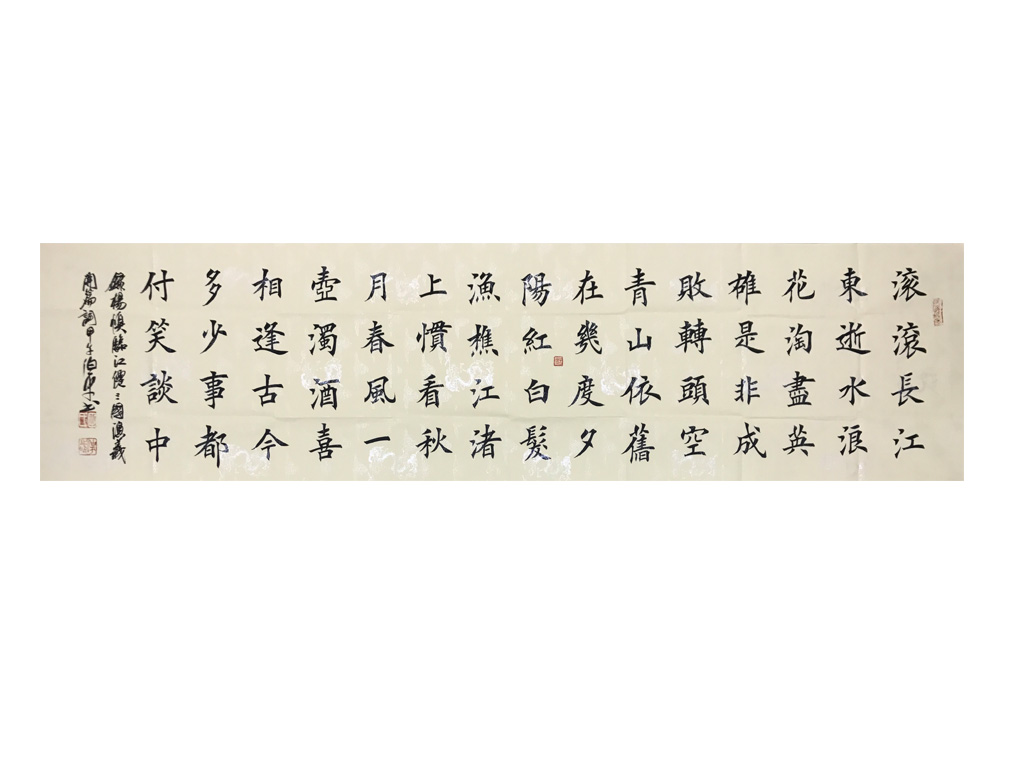 滚滚長江
東逝水浪
花淘盡英
雄是非成
敗轉頭空
青山依舊
在幾度夕
陽紅白髮
漁樵江渚
上慣看秋
月春風一
壺濁酒喜
相逢古今
多少事都
付笑談中
錄楊慎臨江僊三國演義
開篇詞甲午